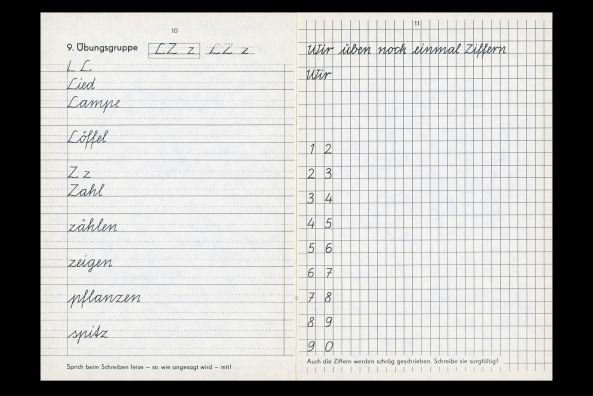 10
9. Übungsgruppe LZ z LZ z
L L
Lied
Lampe
Löffel
Z z
Zahl
zählen
zeigen
pflanzen
spitz
Sprich beim Schreiben leise – so wie angesagt wird – mit!
11
Wir üben noch einmal Ziffern
Wir
1 2
2 3
3 4
4 5
5 6
6 7
7 8
8 9
9 0
Auch die Ziffern werden schräg geschrieben. Schreibe sie sorgfältig!